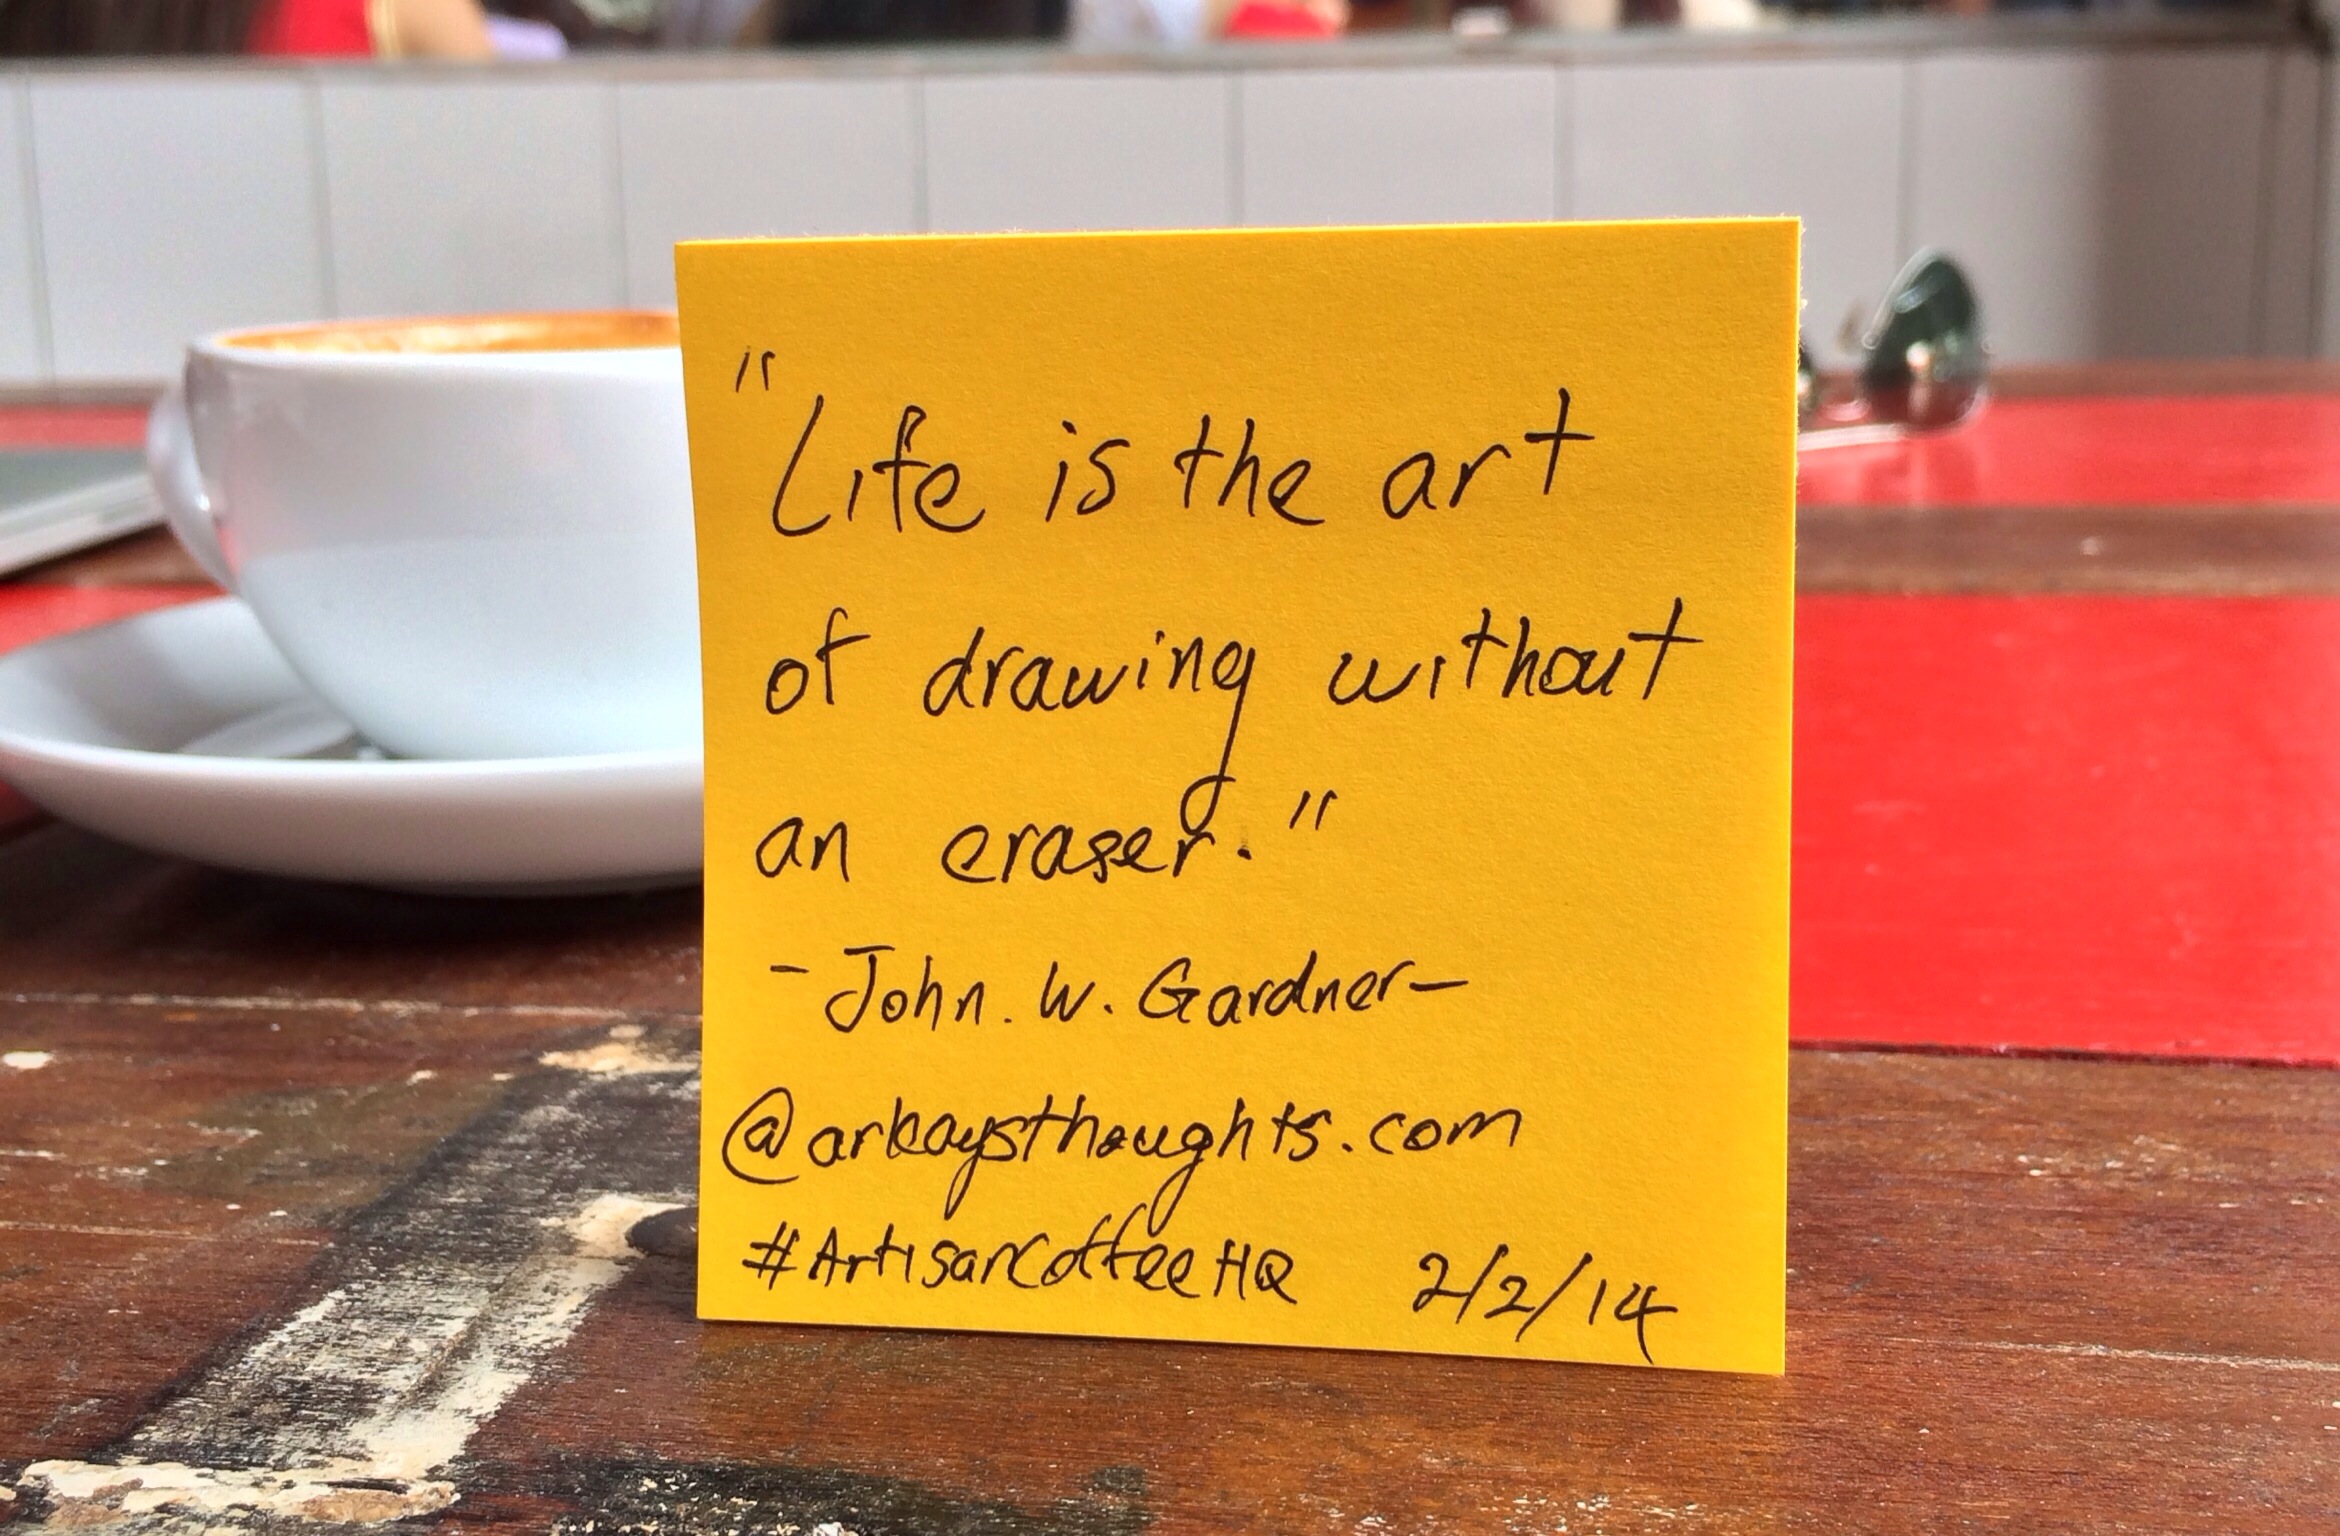 "Life is the art
of drawing without
an eraser."
- John. W. Gardner-
@arkaysthoughts.com
#ArtisanCoffeeHQ 2/2/14